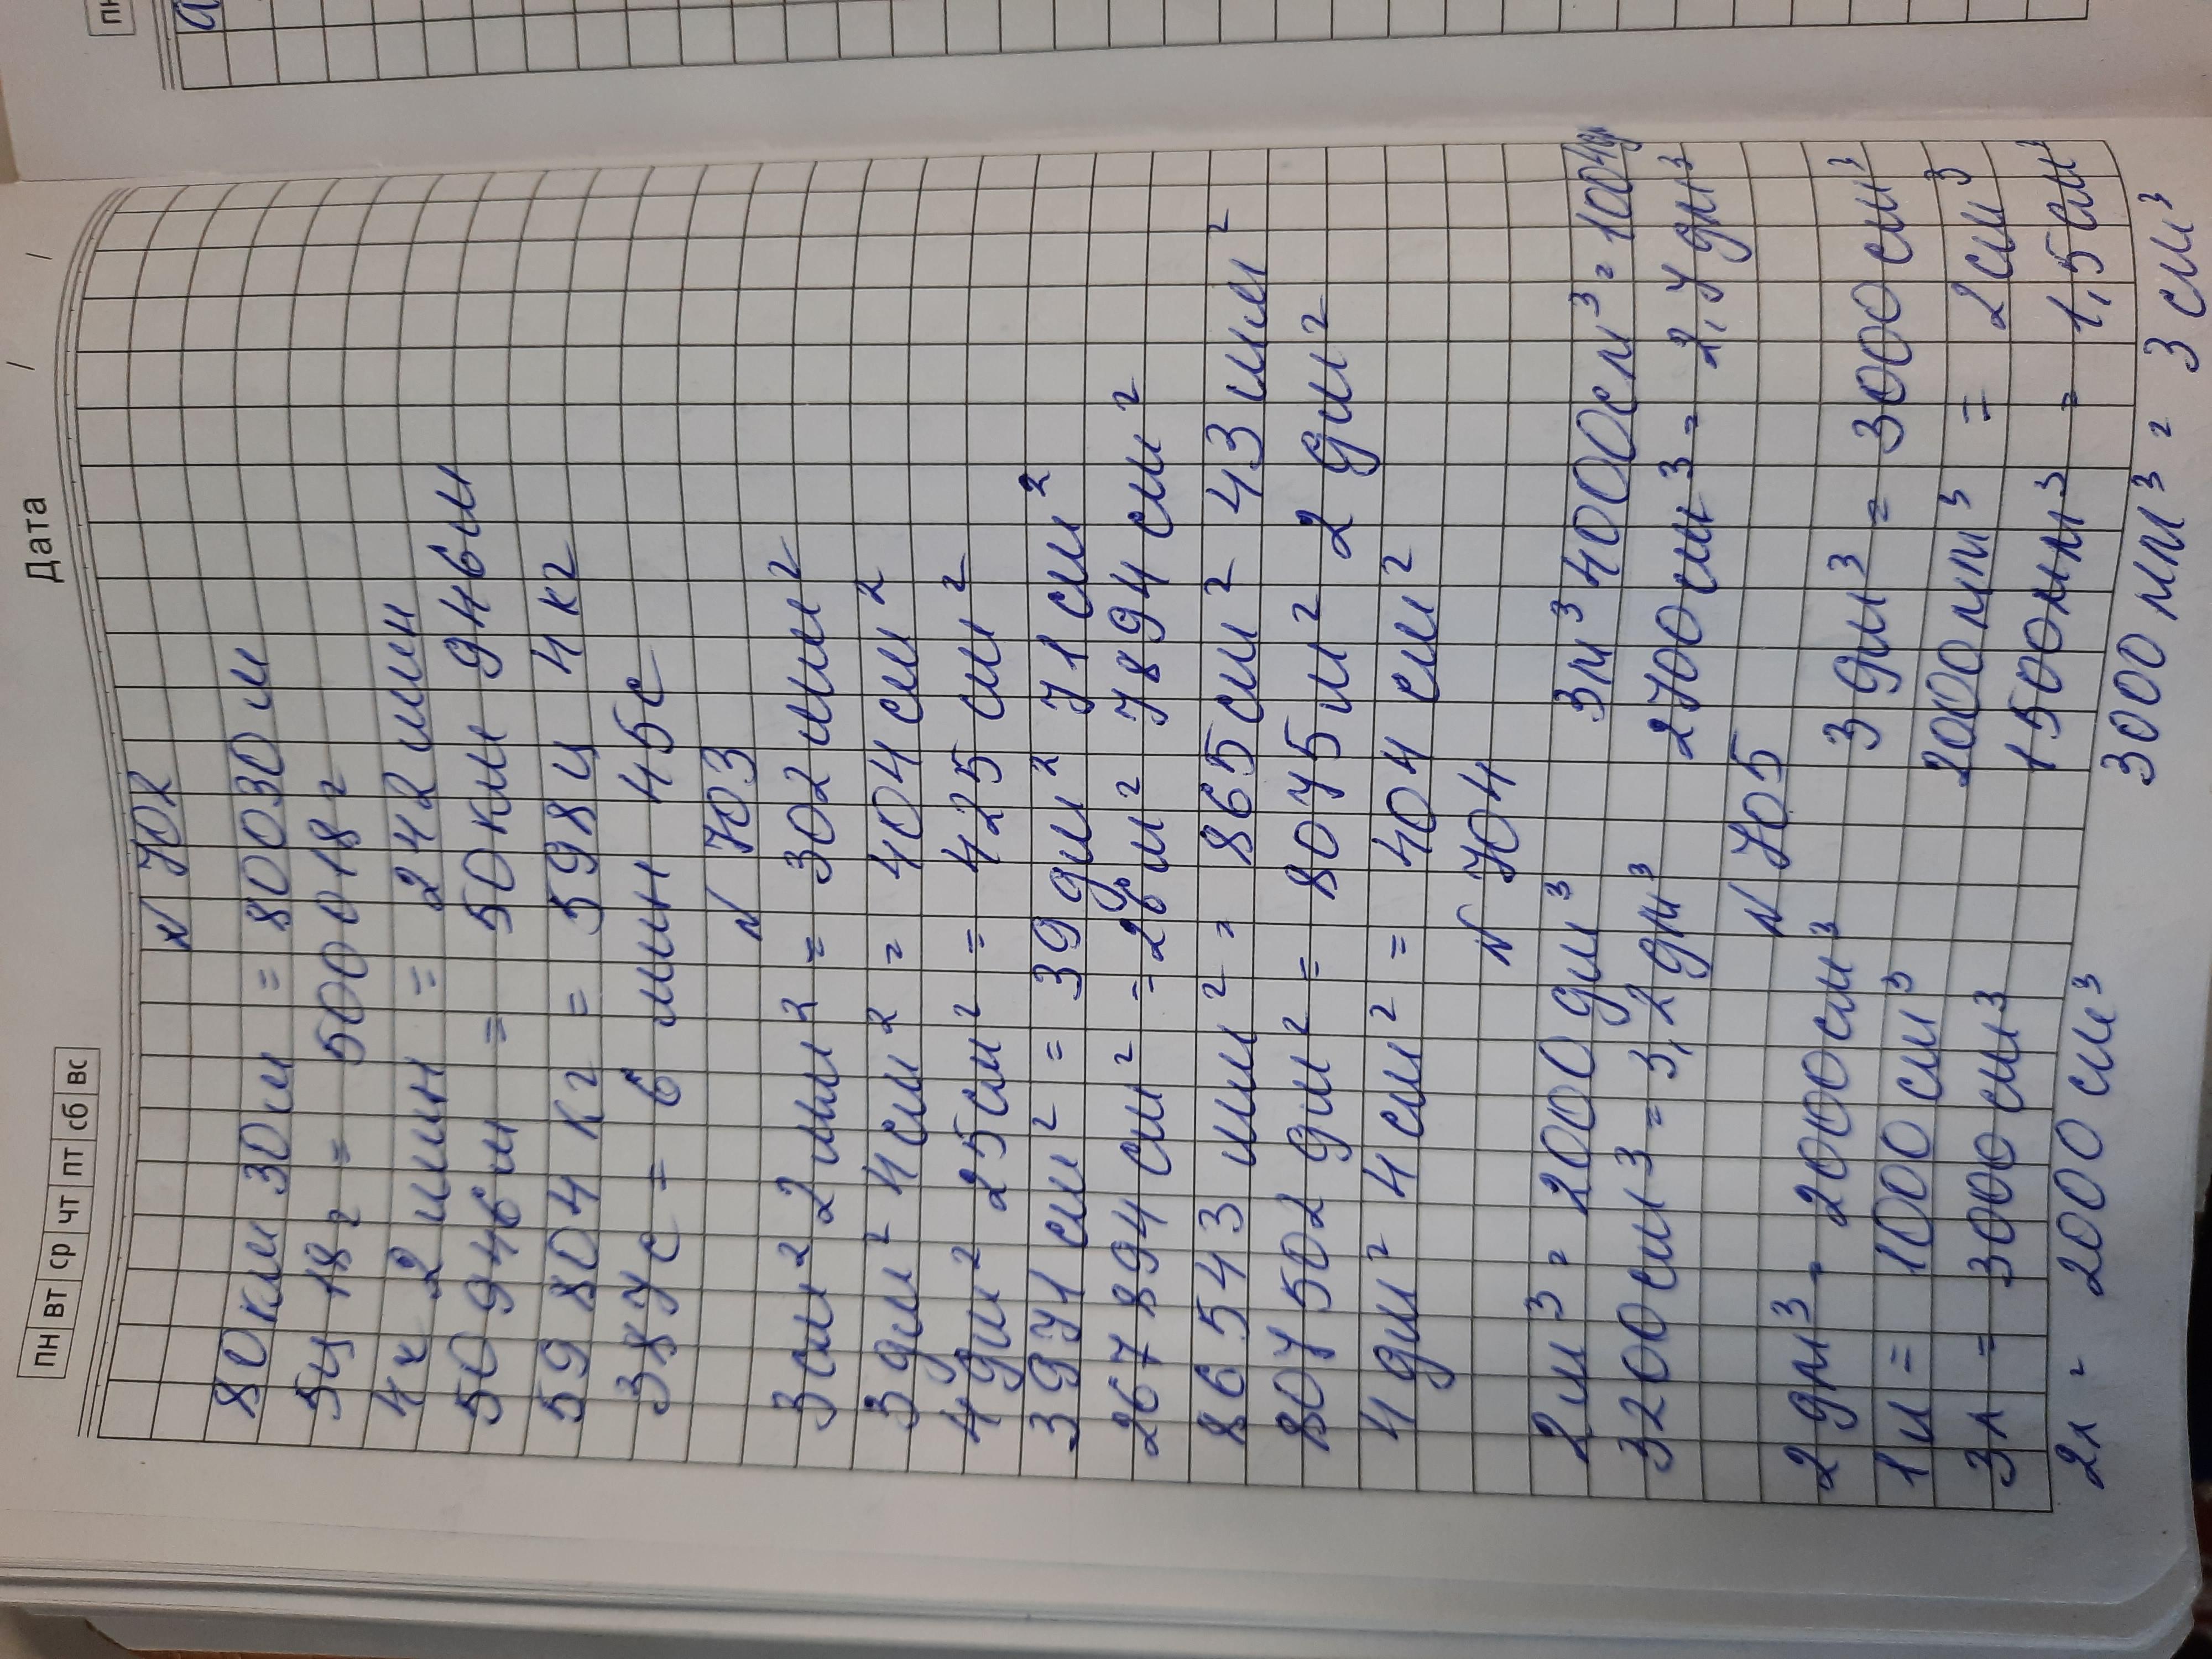 Дата / /
пн вт ср чт пт сб вс
N 702
80км 30м = 80030м
5ц 18г = 500018г
4ч 2 мин = 242мин
50946м = 50км 946м
59804 кг = 598ц 4кг
387с = 6 мин 45с
N 703
3см² 2мм² = 302мм²
3дм² 4см² = 404см²
4дм² 25см² = 425см²
3971см² = 39дм² 71см²
267894см² = 26м² 7894см²
86543 мм² = 865см² 43мм²
807502дм² = 8075м² 2дм²
4дм² 4см² = 404см²
N 704
2м³ = 2000дм³ 3м³ 4000см³ =
3200см³ = 3,2дм³ 2700см³ = 2,7дм³
N 705
2дм³ = 2000см³ 3дм³ = 3000см³
1л = 1000см³ 2000мм³ = 2см³
3л = 3000см³ 1500мм³ = 1,5см³
2л = 2000см³ 3000мм³ = 3см³